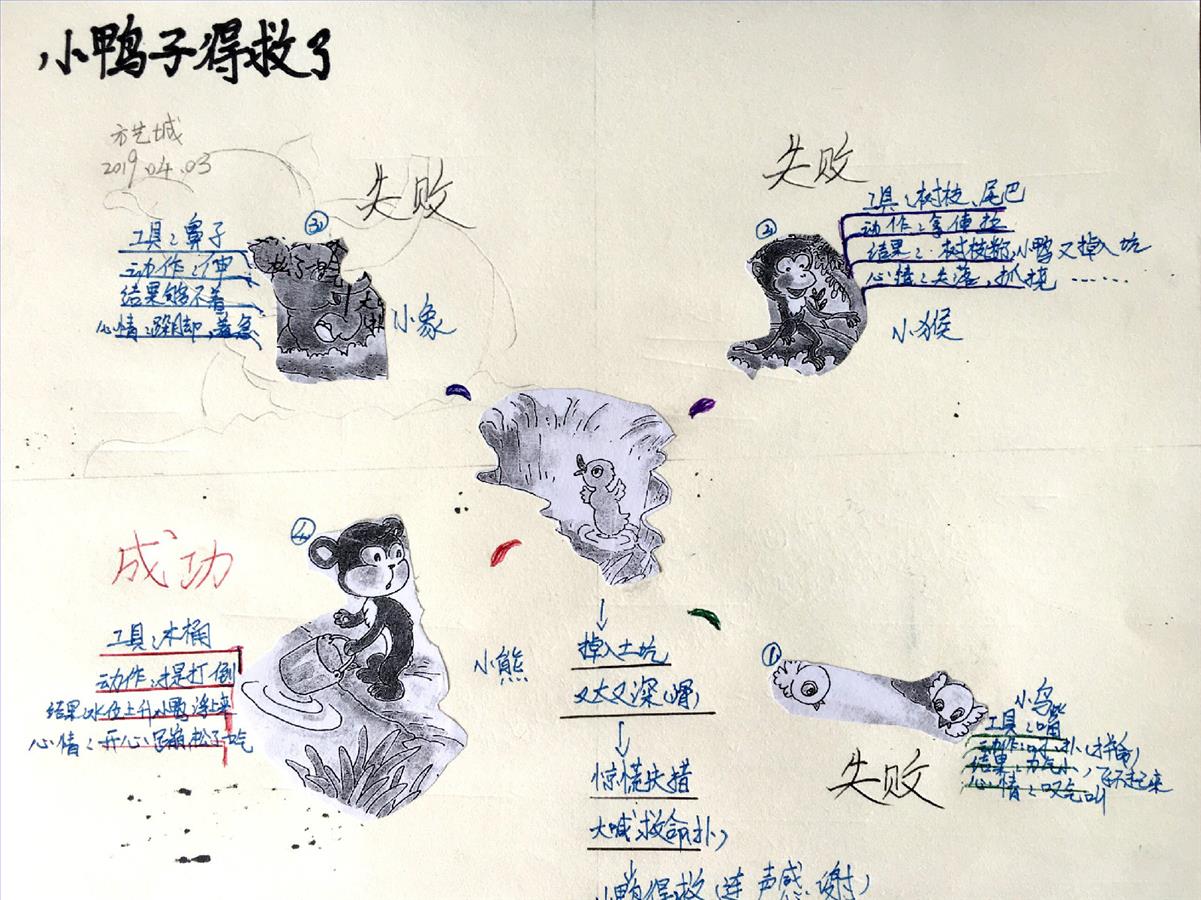 小鸭子得救了
方艺城
2019.04.03
失败
③
工具:鼻子
动作:伸
结果够不着
心情:跺脚,着急
小象
失败
②
工具:树枝、尾巴
动作:拿伸拉
结果:树枝断,小鸭又掉入坑
心情:失落,抓挠……
小猴
④
成功
工具:木桶
动作:提打倒
结果:水位上升小鸭浮上来
心情:开心
松子吃
小熊
掉入土坑
又大又深(滑)
惊慌失措
大喊救命扑
小鸭得救(连声感谢)
①
小鸟
工具:嘴
动作:扑
结果:力气小,飞不起来
心情:叹气叫
失败